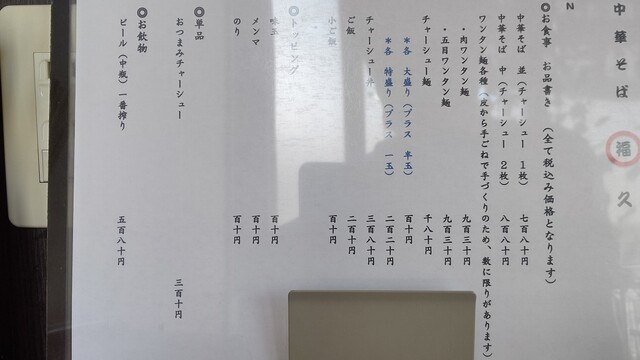 中華そば 福久
N
◎お食事 お品書き (全て税込み価格となります)
中華そば 並(チャーシュー 1枚) 七百八十円
中華そば 中(チャーシュー 2枚) 八百八十円
ワンタン麺各種(皮から手ごねで手づくりのため、数に限りがあります)
・肉ワンタン麺 九百三十円
・五目ワンタン麺 九百三十円
チャーシュー麺 千八十円
*各 大盛り(プラス 半玉) 百十円
*各 特盛り(プラス 一玉) 二百二十円
チャーシュー丼 三百八十円
ご飯 二百十円
小ご飯 百十円
◎トッピング
味玉 百十円
メンマ 百十円
のり 百十円
◎単品
おつまみチャーシュー 三百十円
◎お飲物
ビール(中瓶)一番搾り 五百八十円